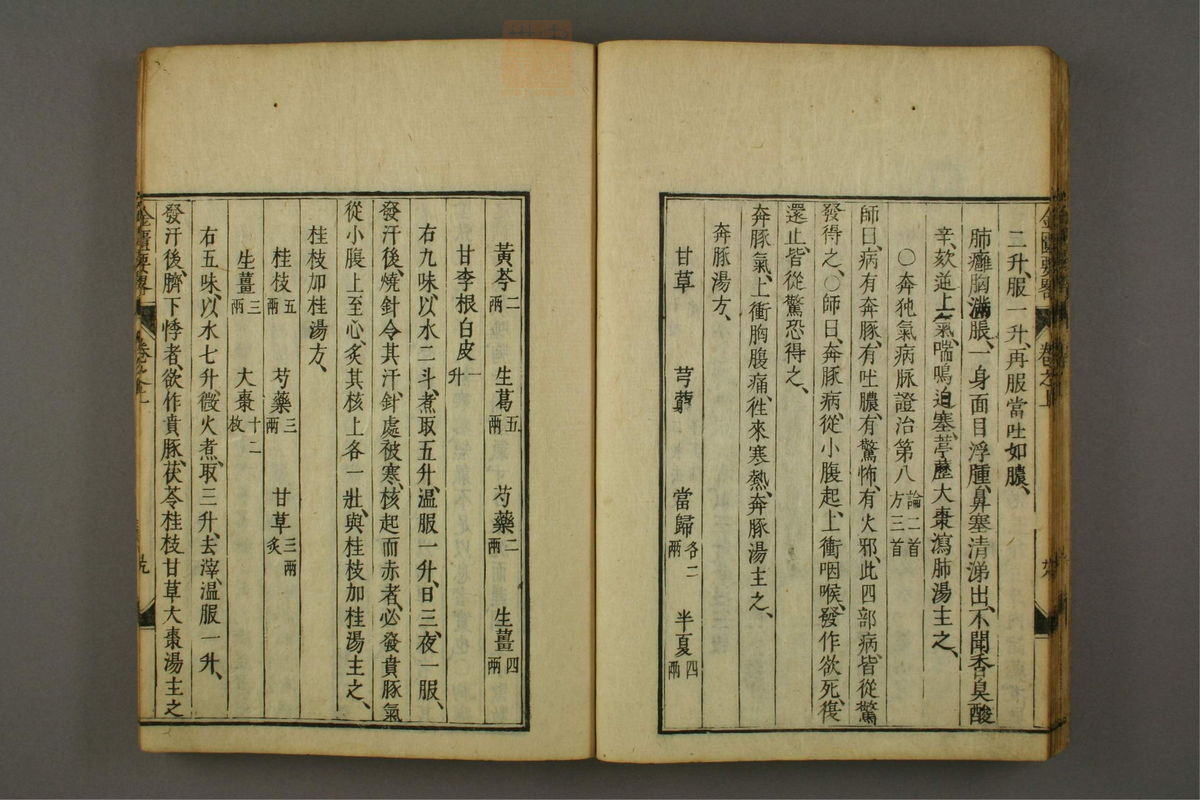 二升、服一升、再服當吐如膿、
肺癰胸滿脹、一身面目浮腫、鼻塞清涕出、不聞香臭酸
辛、欬逆上氣、喘鳴迫塞、葶藶大棗瀉肺湯主之、
〇奔㹠氣病脉證治第八 論二首 方三首
師曰、病有奔豚、有吐膿、有驚怖、有火邪、此四部病、皆從驚
發得之、〇師曰、奔豚病、從小腹起、上衝咽喉、發作欲死、復
還止、皆從驚恐得之、
奔豚氣、上衝胸腹痛、徃來寒熱、奔豚湯主之、
奔豚湯方、
甘草 芎藭 當歸各二兩 半夏四兩
金匱要畧 卷之上
黃芩二兩 生葛五兩 芍藥二兩 生薑四兩
甘李根白皮一升
右九味、以水二斗、煮取五升、温服一升、日三、夜一服、
發汗後、燒針令其汗、針處被寒、核起而赤者、必發賁豚氣
從小腹上至心、灸其核上各一壯、與桂枝加桂湯主之、
桂枝加桂湯方、
桂枝五兩 芍藥三兩 甘草三兩炙
生薑三兩 大棗十二枚
右五味、以水七升、微火煮、取三升、去滓、温服一升、
發汗後、臍下悸者、欲作賁豚、茯苓桂枝甘草大棗湯主之
金匱要畧